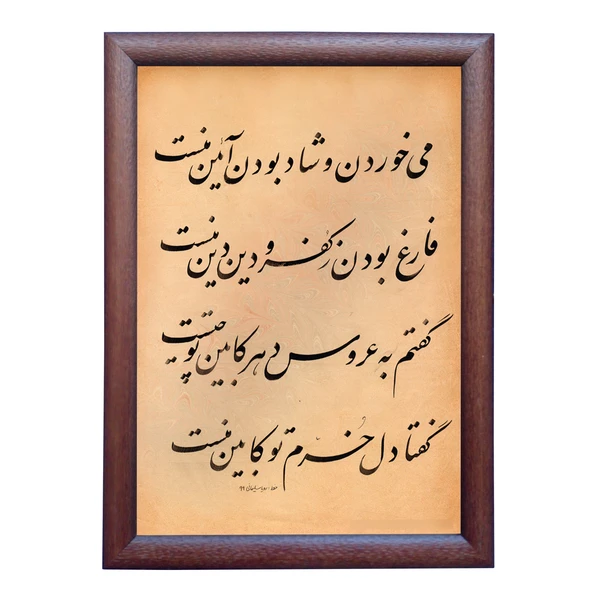 می خوردن و شاد بودن آئین منست
فارغ بودن ز کفر و دین دین منست
گفتم به عروس دهر کابین تو چیست
گفتا دل خُرّم تو کابین منست